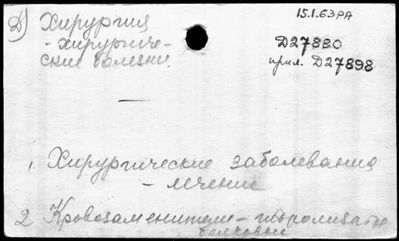 Д) Хирургия
- хирургиче-
ские болезни.
15.1.63 РА
Д27880
прил. Д27898
—
1. Хирургические заболевания
- лечение
2 Кровозаменители - гидролизаты
белковые